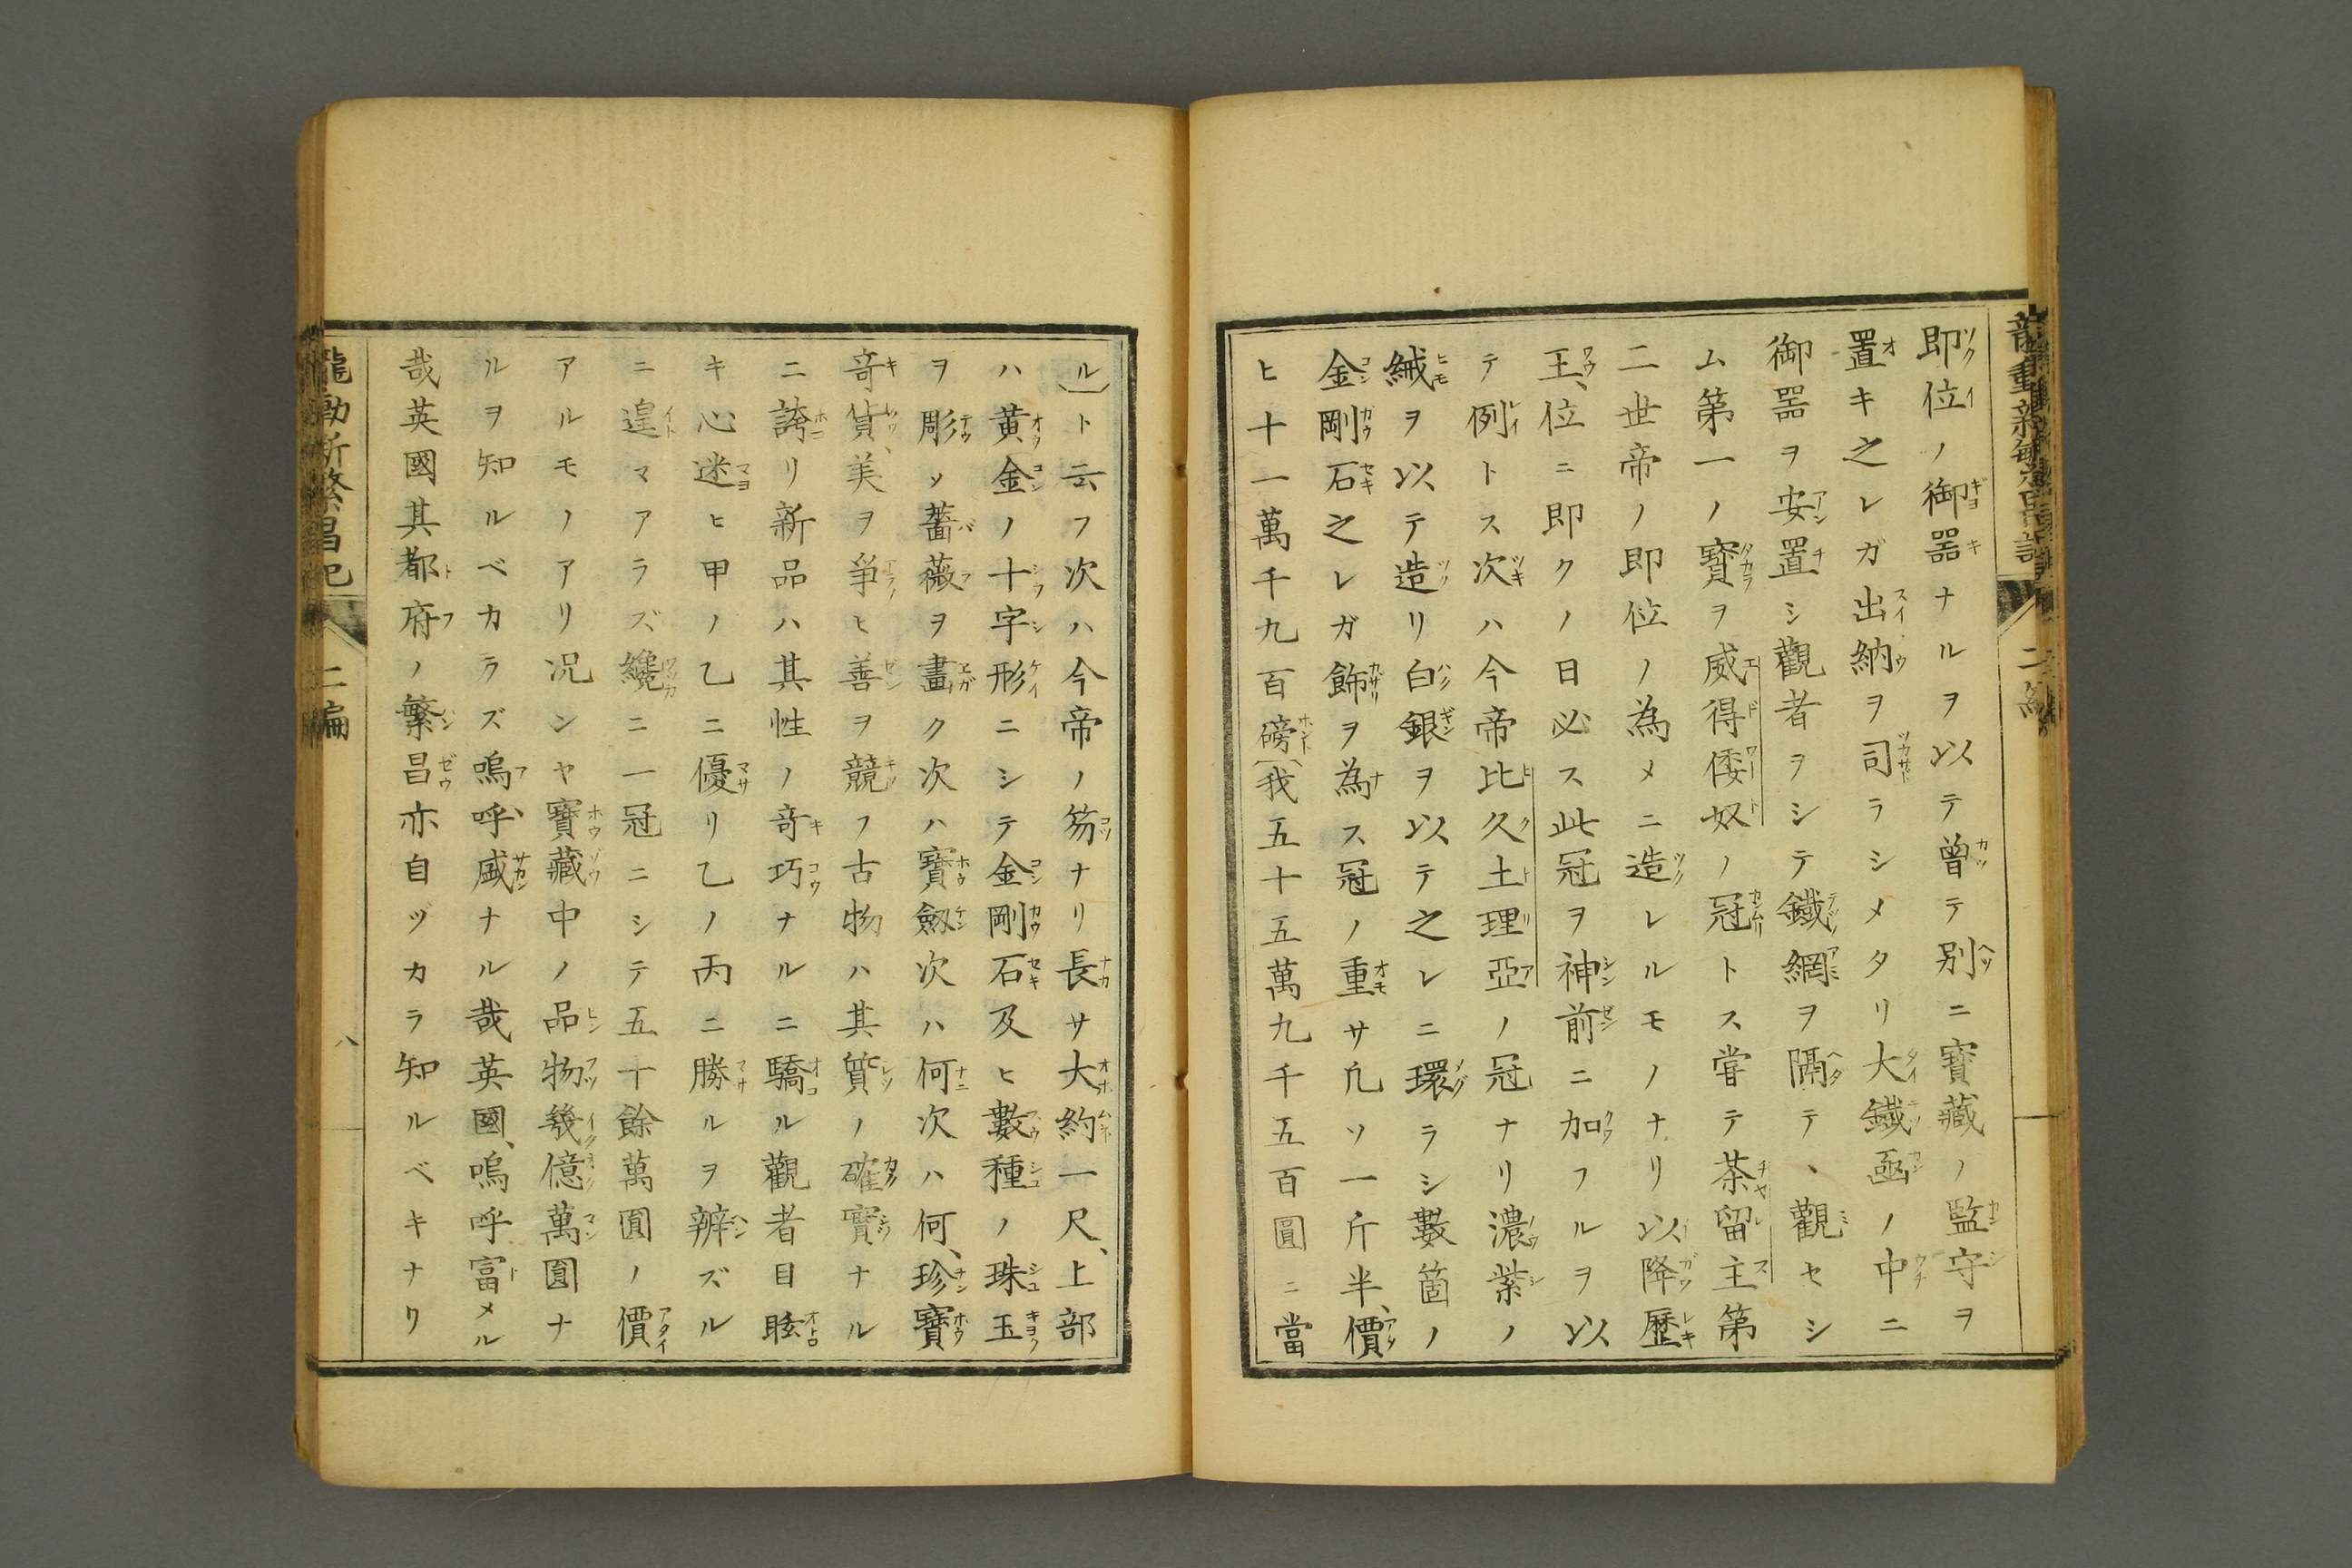 即位ノ御器ナルヲ以テ曾テ別ニ寶藏ノ監守ヲ
置キ之レガ出納ヲ司ラシメタリ大鐵凾ノ中ニ
御器ヲ安置シ觀者ヲシテ鐵網ヲ隔テヽ觀セシ
ム第一ノ寶ヲ威得倭奴ノ冠トス甞テ茶留主第
二世帝ノ即位ノ為メニ造レルモノナリ以降歷
王、位ニ即クノ日必ス此冠ヲ神前ニ加フルヲ以
テ例トス次ハ今帝比久土理亞ノ冠ナリ濃紫ノ
絨ヲ以テ造リ白銀ヲ以テ之レニ環ラシ數箇ノ
金剛石之レガ飾ヲ為ス冠ノ重サ凢ソ一斤半、價
ヒ十一萬千九百磅(我五十五萬九千五百圓ニ當
ル)ト云フ次ハ今帝ノ笏ナリ長サ大約一尺、上部
ハ黄金ノ十字形ニシテ金剛石及ヒ數種ノ珠玉
ヲ彫ソ薔薇ヲ畫ク次ハ寶劔次ハ何次ハ何、珍寶
竒貨、美ヲ爭ヒ善ヲ競フ古物ハ其質ノ確實ナル
ニ誇リ新品ハ其性ノ竒巧ナルニ驕ル觀者目眩
キ心迷ヒ甲ノ乙ニ優リ乙ノ丙ニ勝ルヲ辨ズル
ニ遑マアラズ纔ニ一冠ニシテ五十餘萬圓ノ價
アルモノアリ况ンヤ寶藏中ノ品物幾億萬圓ナ
ルヲ知ルベカラズ嗚呼、盛ナル哉英國、嗚呼富メル
哉英國其都府ノ繁昌亦自ヅカラ知ルベキナリ
龍動新繁昌記
二編
八